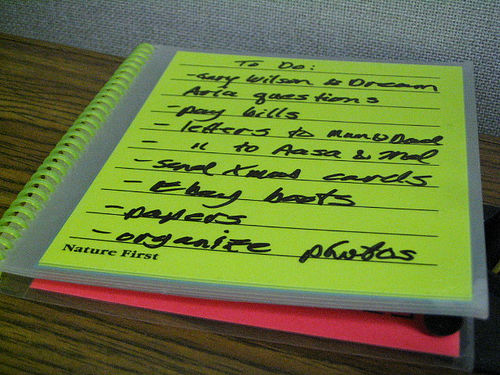 To Do:
- Gary Wilson & Dream
Aria questions
- pay bills
- letters to Mum & Dad
- " to Aasa & Mal
- send Xmas cards
- Ebay boots
- papers
- organize photos
Nature First